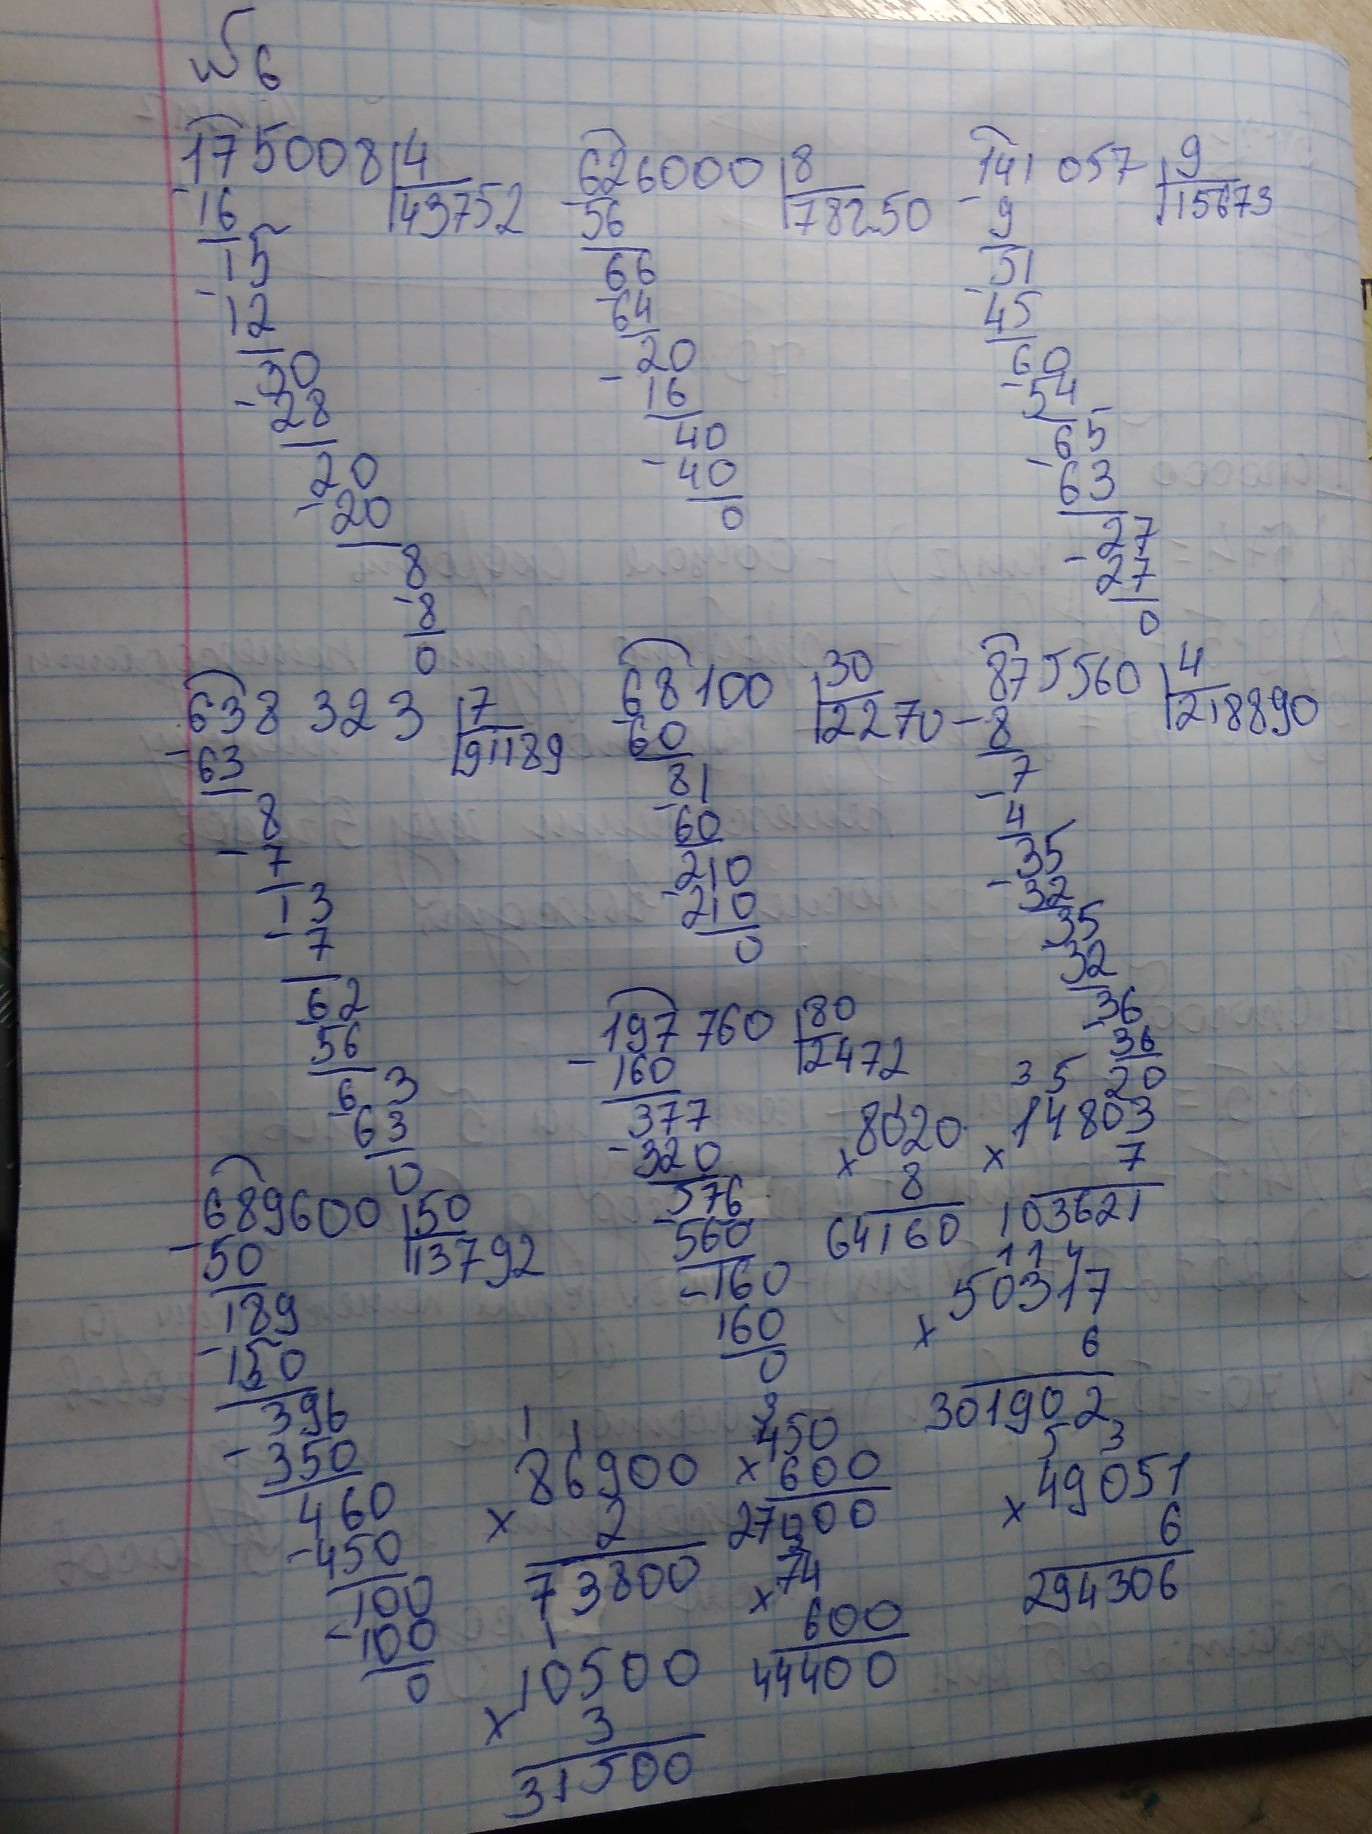 №6
175008 4
-16 43752
15
-12
30
-28
20
-20
8
-8
0
626000 8
-56 78250
66
-64
20
-16
40
-40
0
141 057 9
-9 15673
51
-45
60
-54
65
-63
27
-27
0
638 323 7
-63 91189
8
-7
13
-7
62
56
63
-63
0
68100 30
-60 2270
81
-60
210
-210
0
875560 4
-8 218890
7
-4
35
-32
35
32
36
-36
20
197 760 80
-160 2472
377
-320
576
-560
-160
160
0
1
8020
x 8
64160
3 5 2
14803
x 7
103621
689600 50
-50 13792
189
-150
396
-350
460
-450
100
-100
0
1 1 4
50317
x 6
301902
1 1
86900
x 2
73800
3
450
x 600
270000
5 3
49051
x 6
294306
2
74
x 600
44400
1
10500
x 3
31500